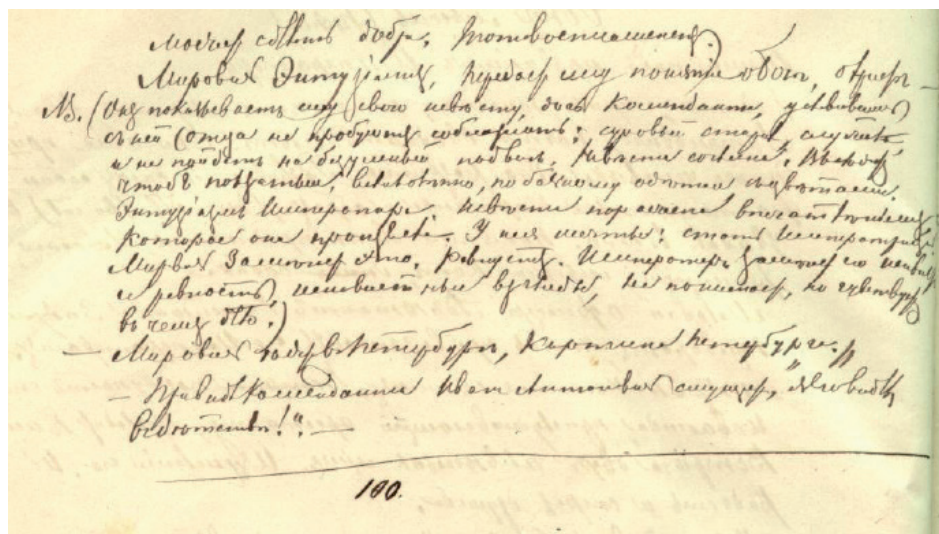 можешь сдѣлать добра. Тотъ воспламененъ.)
Мировичъ Энтузіастъ, передаетъ ему понятіе о богѣ, о Христѣ —
NB. (Онъ показываетъ ему свою невѣсту, дочь Коменданта, условившись
съ ней (отца не пробуютъ соблазнять: суровый старый служака
и не пойдетъ на безумный подвигъ. Невѣста согласна. Выходитъ
чтобъ показаться, великолѣпно, по бальному одѣтая съ цвѣтами.
Энтузіазмъ Императора. Невѣста поражена впечатлѣніемъ,
которое она произвела. У нея мечты: стать Императрицей.
Мировичъ замѣчаетъ это. Ревнуетъ. Императоръ замѣчаетъ его ненависть
и ревность, ненавистные взгляды, не понимаетъ, но чувствуетъ
въ чемъ дѣло.)
— Мировичъ ѣдетъ въ Петербургъ, Картина Петербурга.
— При видѣ Коменданта Иванъ Антоновичъ смущенъ, „Я его видѣлъ
въ дѣтствѣ!“. —
100.